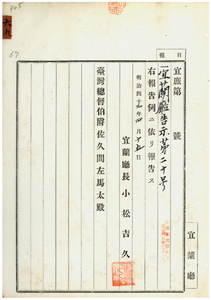 日
報
宜庶第　　　號
宜蘭廳告示第二十号
右報告例ニ依リ報告ス
明治四十年四月十五日
宜蘭廳長　小松吉久
臺灣總督伯爵佐久間左馬太殿
宜蘭廳